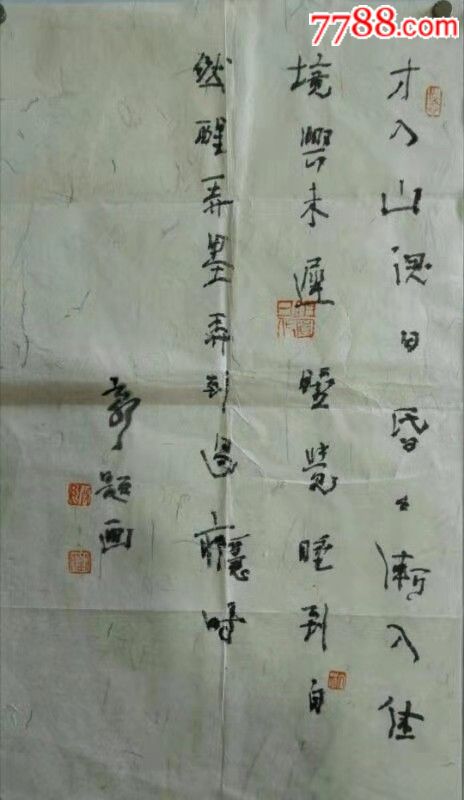 7788.com
才入山深日昏々漸入佳
境興未遲睡覺睡到自
然醒弄墨弄到過癮時
題画